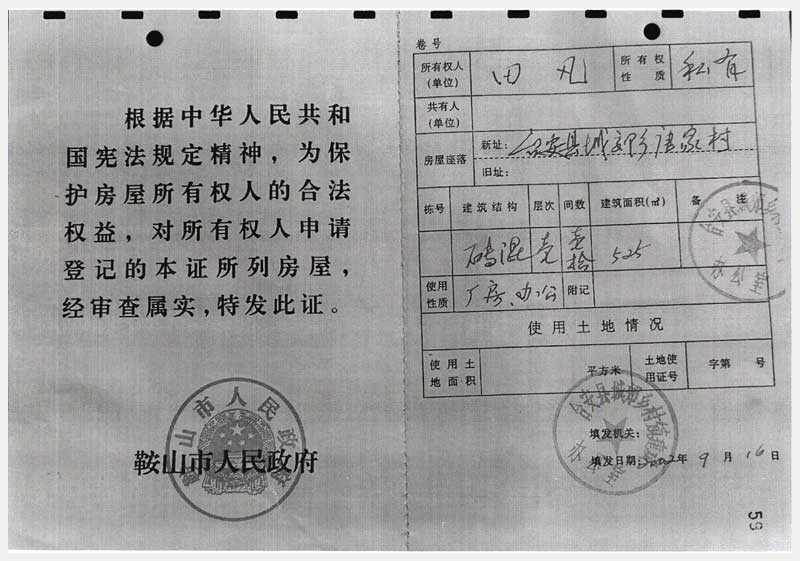 根据中华人民共和
国宪法规定精神，为保
护房屋所有权人的合法
权益，对所有权人申请
登记的本证所列房屋，
经审查属实，特发此证。
鞍山市人民政府
鞍山市人民政府
卷号
所有权人（单位） 田凡 所有权性质 私有
共有人（单位）
房屋座落 新址：台安县城郊乡 家村
旧址：
栋号 建筑结构 层次 间数 建筑面积(㎡) 备注
砖混 壹 壹拾 525
使用性质 厂房、办公 附记
使用土地情况
使用土地面积 平方米 土地使用证号 字第 号
填发机关：
填发日期：2002年9月16日
台安县城郊乡村镇建设
办公室
台安县
办公室
59